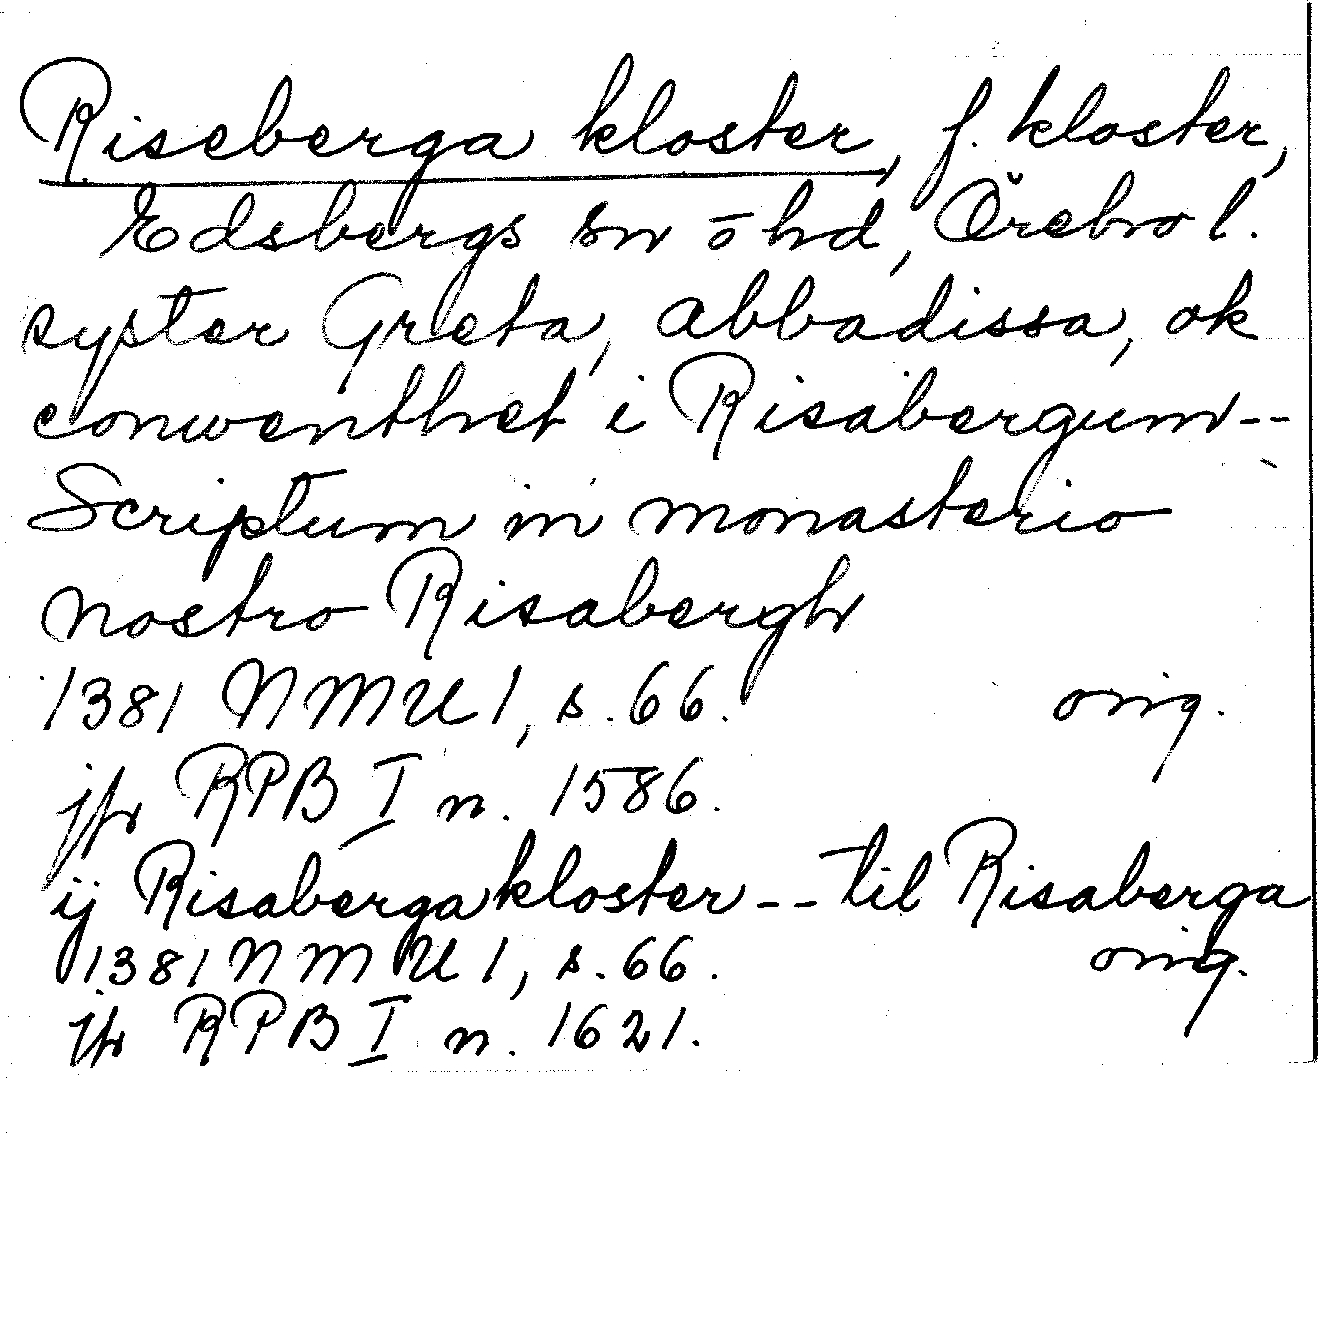 Riseberga kloster, f. kloster,
Edsbergs sn o hd, Örebro l.
syster Greta, abbadissa, ok
conwenthet i Risabergum--
Scriptum in monasterio
nostro Risabergh
1381 NMU 1, s. 66. orig.
jfr RPB I n. 1586.
ij Risaberga kloster -- til Risaberga
1381 NMU 1, s. 66. orig.
jfr RPB I n. 1621.